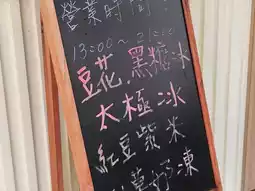 營業時間：
13:00～21:00
豆花.黑糖冰
太極冰
紅豆紫米
凍